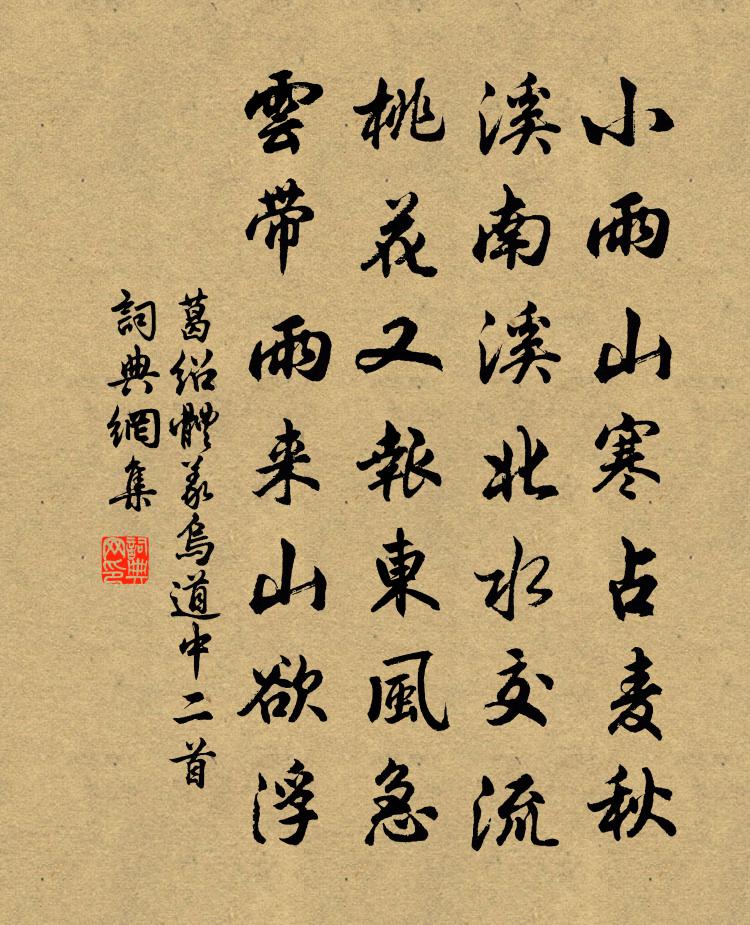 小雨山寒占麦秋
溪南溪北水交流
桃花又報東風急
雲帶雨来山欲浮
葛绍體義烏道中二首
詞典網集
詞典网印